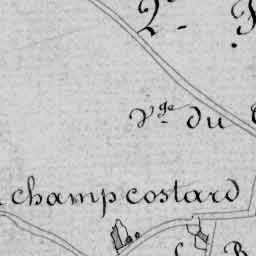 2ᵉ
Vᵍᵉ du
champ costard